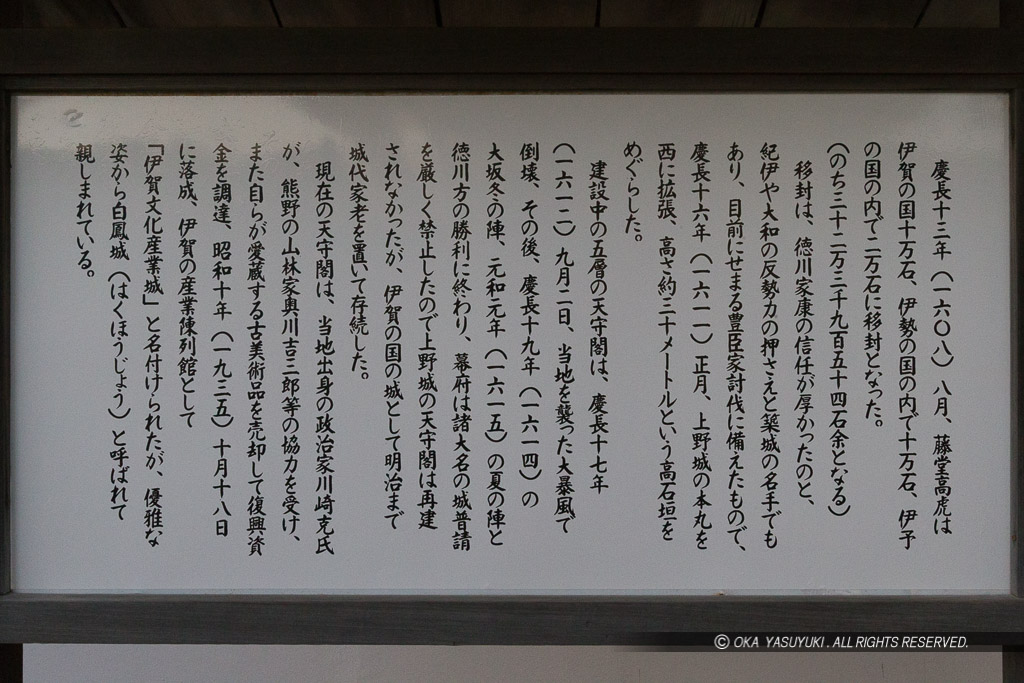 慶長十三年（一六〇八）八月、藤堂高虎は
伊賀の国十万石、伊勢の国の内で十万石、伊予
の国の内で二万石に移封となった。
（のち三十二万三千九百五十四石余となる）
移封は、徳川家康の信任が厚かったのと、
紀伊や大和の反勢力の押さえと築城の名手でも
あり、目前にせまる豊臣家討伐に備えたもので、
慶長十六年（一六一一）正月、上野城の本丸を
西に拡張、高さ約三十メートルという高石垣を
めぐらした。
建設中の五層の天守閣は、慶長十七年
（一六一二）九月二日、当地を襲った大暴風で
倒壊、その後、慶長十九年（一六一四）の
大坂冬の陣、元和元年（一六一五）の夏の陣と
徳川方の勝利に終わり、幕府は諸大名の城普請
を厳しく禁止したので上野城の天守閣は再建
されなかったが、伊賀の国の城として明治まで
城代家老を置いて存続した。
現在の天守閣は、当地出身の政治家川崎克氏
が、熊野の山林家奥川吉三郎等の協力を受け、
また自らが愛蔵する古美術品を売却して復興資
金を調達、昭和十年（一九三五）十月十八日
に落成、伊賀の産業陳列館として
「伊賀文化産業城」と名付けられたが、優雅な
姿から白鳳城（はくほうじょう）と呼ばれて
親しまれている。
© OKA YASUYUKI . ALL RIGHTS RESERVED.